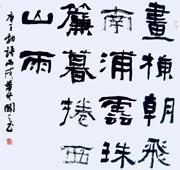 畫棟朝飛
南浦雲珠
簾暮捲西
山雨
唐王勃詩